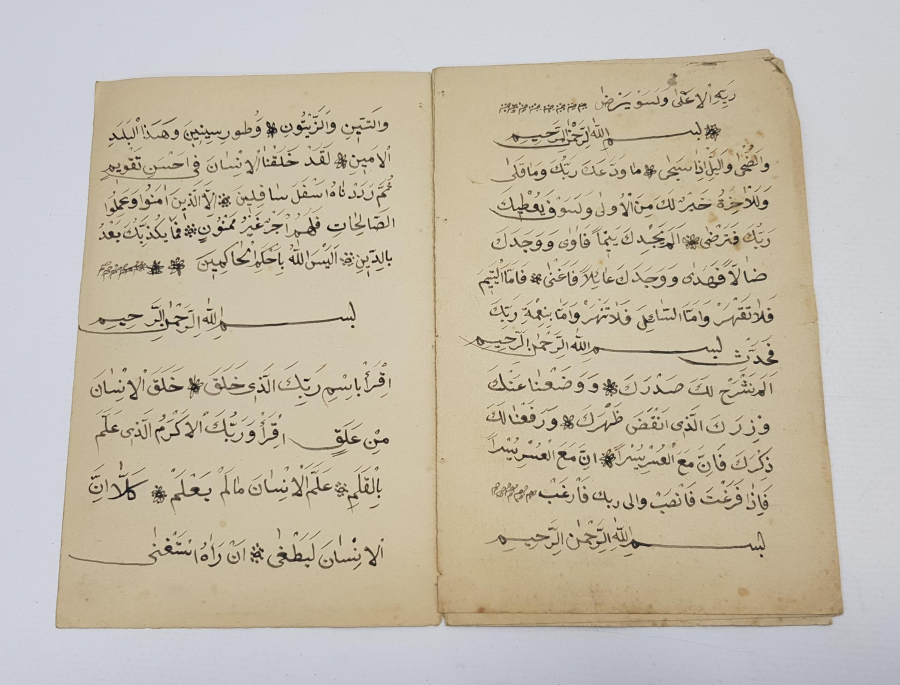 ربه الاعلى ولسوف يرضى
بسم الله الرحمن الرحيم
والضحى واليل اذا سجى ما ودعك ربك وما قلى
وللاخرة خير لك من الاولى ولسوف يعطيك
ربك فترضى الم يجدك يتيماً فاوى ووجدك
ضالاً فهدى ووجدك عايلاً فاغنى فاما اليتيم
فلا تقهر واما السائل فلا تنهر واما بنعمة ربك
فحدث بسم الله الرحمن الرحيم
الم نشرح لك صدرك ووضعنا عنك
وزرك الذى انقض ظهرك ورفعنا لك
ذكرك فان مع العسر يسراً ان مع العسر يسراً
فاذا فرغت فانصب والى ربك فارغب
بسم الله الرحمن الرحيم
والتين والزيتون وطور سينين وهذا البلد
الامين لقد خلقنا الانسان فى احسن تقويم
ثم رددناه اسفل سافلين الا الذين امنوا وعملوا
الصالحات فلهم اجر غير ممنون فما يكذبك بعد
بالدين اليس الله باحكم الحاكمين
بسم الله الرحمن الرحيم
اقرأ باسم ربك الذى خلق خلق الانسان
من علق اقرأ وربك الاكرم الذى علم
بالقلم علم الانسان مالم يعلم كلا ان
الانسان ليطغى ان راه استغنى